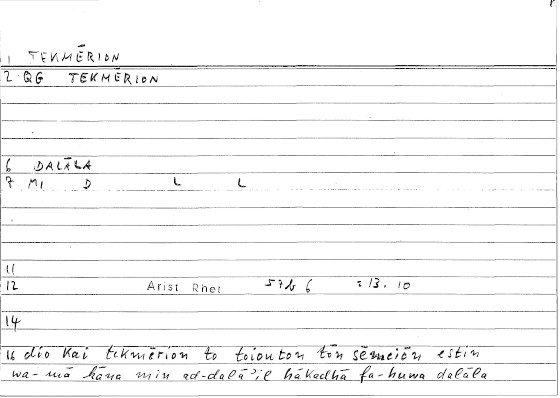 1 TEKMĒRION
2 QG TEKMĒRION
6 DALĀLA
7 MI D L L
11
12 Arist Rhet 57b 6 : 13. 10
14
16 dio kai tekmērion to toiouton tōn sēmeiōn estin
wa-mā kāna min ad-dalāʾil hākadhā fa-huwa dalāla